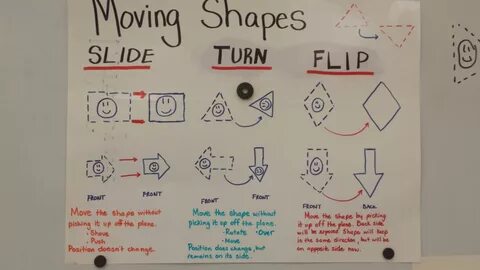 Moving Shapes
SLIDE
TURN
FLIP
FRONT
FRONT
FRONT
FRONT
FRONT
BACK
Move the shape without
picking it up off the plane.
· Shove
· Push
Position doesn't change.
Move the shape without
picking it up off the plane.
· Rotate · Over
· Move
Position does change, but
remains on its side.
Move the shape by picking
it up off the plane. Back side
will be exposed. Shape will keep
in the same direction, but will be
on opposite side now.